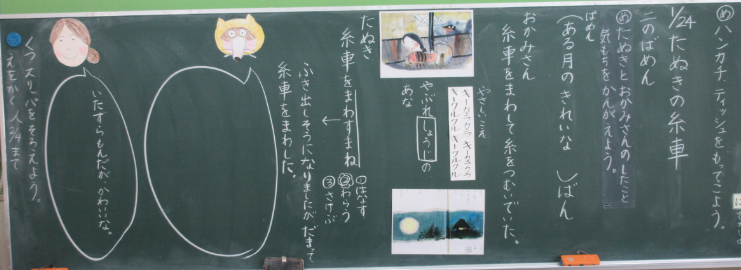 めハンカチ、ティッシュをもってこよう。
1/24 たぬきの糸車
二のばめん
めたぬきとおかみさんのしたこと
気もちをかんがえよう。
ばめん
(ある月のきれいな)ばん
おかみさん
糸車をまわして糸をつむいでいた。
やさしいこえ
キーカラカラ キーカラカラ
キークルクル キークルクル
やぶれしょうじの
あな
たぬき
糸車をまわすまね
①はなす
②わらう
③さけぶ
ふき出しそうになりましたが、だまって
糸車をまわした。
いたずらもんだが、かわいいな。
くつ、スリッパをそろえよう。
えをかく人 2/4まで